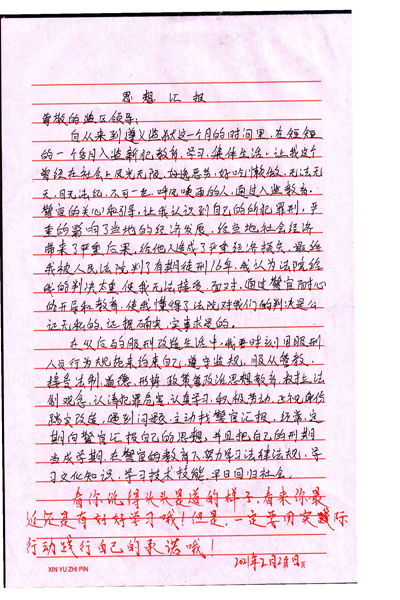 思想汇报
尊敬的监区领导:
自从来到遵义监狱这一个月的时间里,在短短
的一个多月入监新犯教育,学习,集体生活。让我这个
曾经在社会上风光无限,好逸恶劳,好吃懒做,无法无
天,目无法纪,不可一世,呼风唤雨的人,通过入监教育。
警官的关心和引导,让我认识到自己的所犯罪刑,严
重的影响了当地的经济发展,给当地社会经济
带来了严重后果,给他人造成了严重经济损失,最终
我被人民法院判了有期徒刑16年,我认为法院给
我的判决太重,使我无法接受,面对,通过警官耐心
的开导和教育,使我懂得了法院对我们的判决是公
正无私的,证据确实,实事求是的。
在以后的服刑改造生活中,我要时刻用服刑
人员行为规范来约束自己,遵守监规,服从管教,
接受法制,道德,形势,政策等政治思想教育,树立法
制观念,认清犯罪危害,认真学习,积极劳动,正视身份
踏实改造,遇到问题,主动找警官汇报,经常,定
期向警官汇报自己的思想,并且把自己的刑期
当成学期,在警官的教育下,努力学习法律法规,学
习文化知识,学习技术技能,早日回归社会。
看你说得头头是道的样子,看来你最
近还是有好好学习哦!但是,一定要用实际
行动践行自己的承诺哦!
XIN YU ZHI PIN
2021年2月28日
页